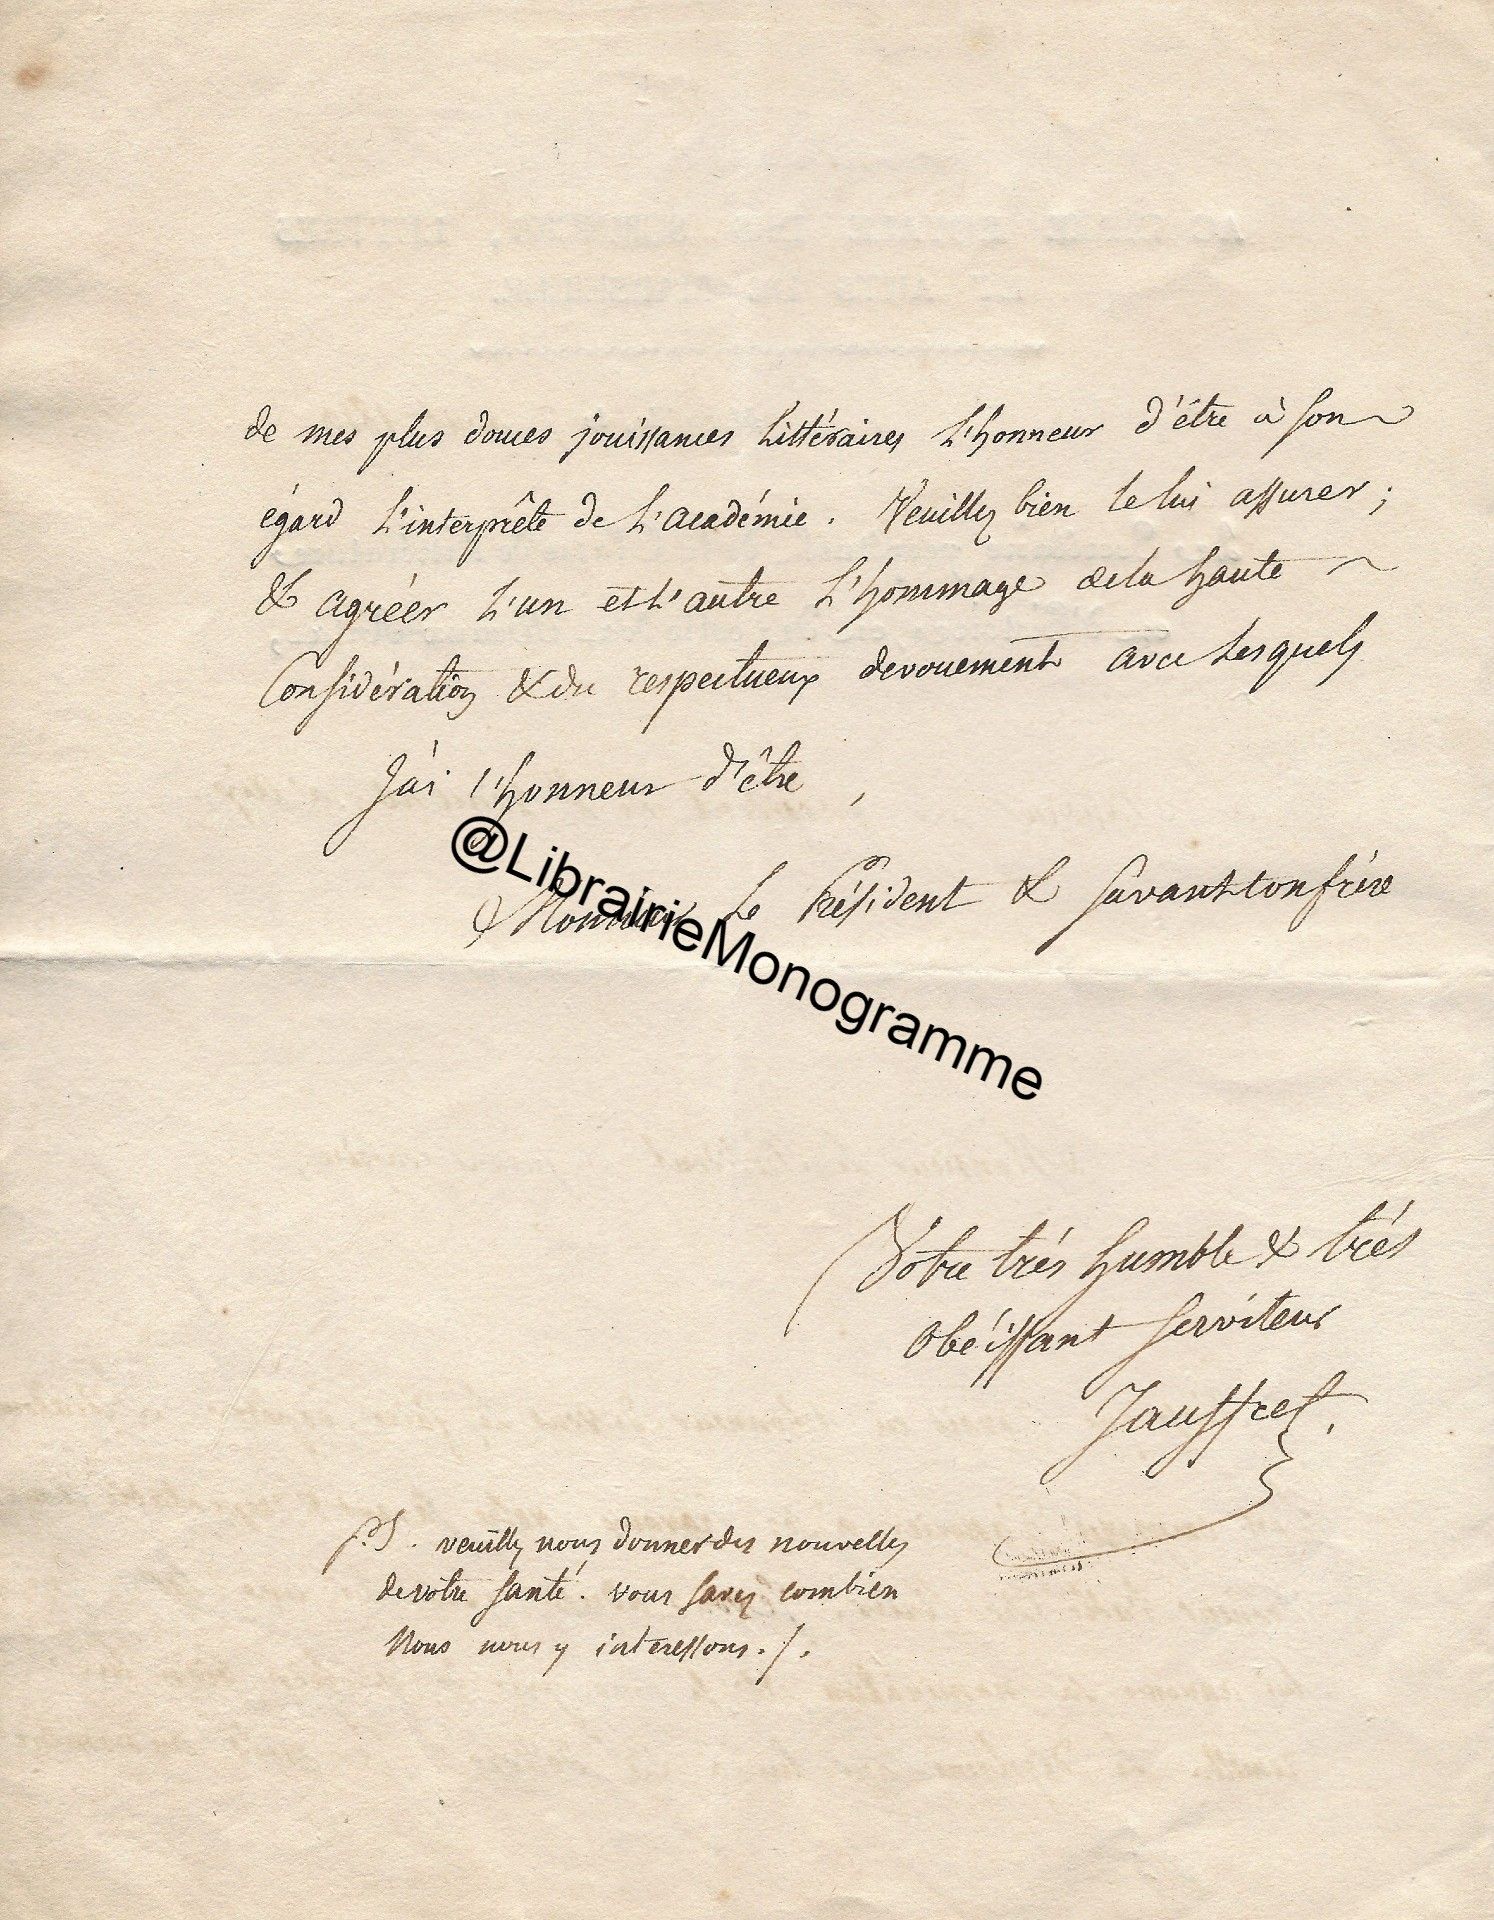 de mes plus douces jouissances littéraires l'honneur d'être à son
égard l'interprête de l'académie. Veuillez bien le lui assurer ;
& agréer l'un et l'autre l'hommage de la haute
Considération & du respectueux devouement avec lesquels
J'ai l'honneur d'être ,
Monsieur le Président & savant confrère
@LibrairieMonogramme
Votre très humble & très
obéissant serviteur
Jauffret.
P.S. veuillez nous donner des nouvelles
de votre santé. vous savez combien
Nous nous y interessons./.